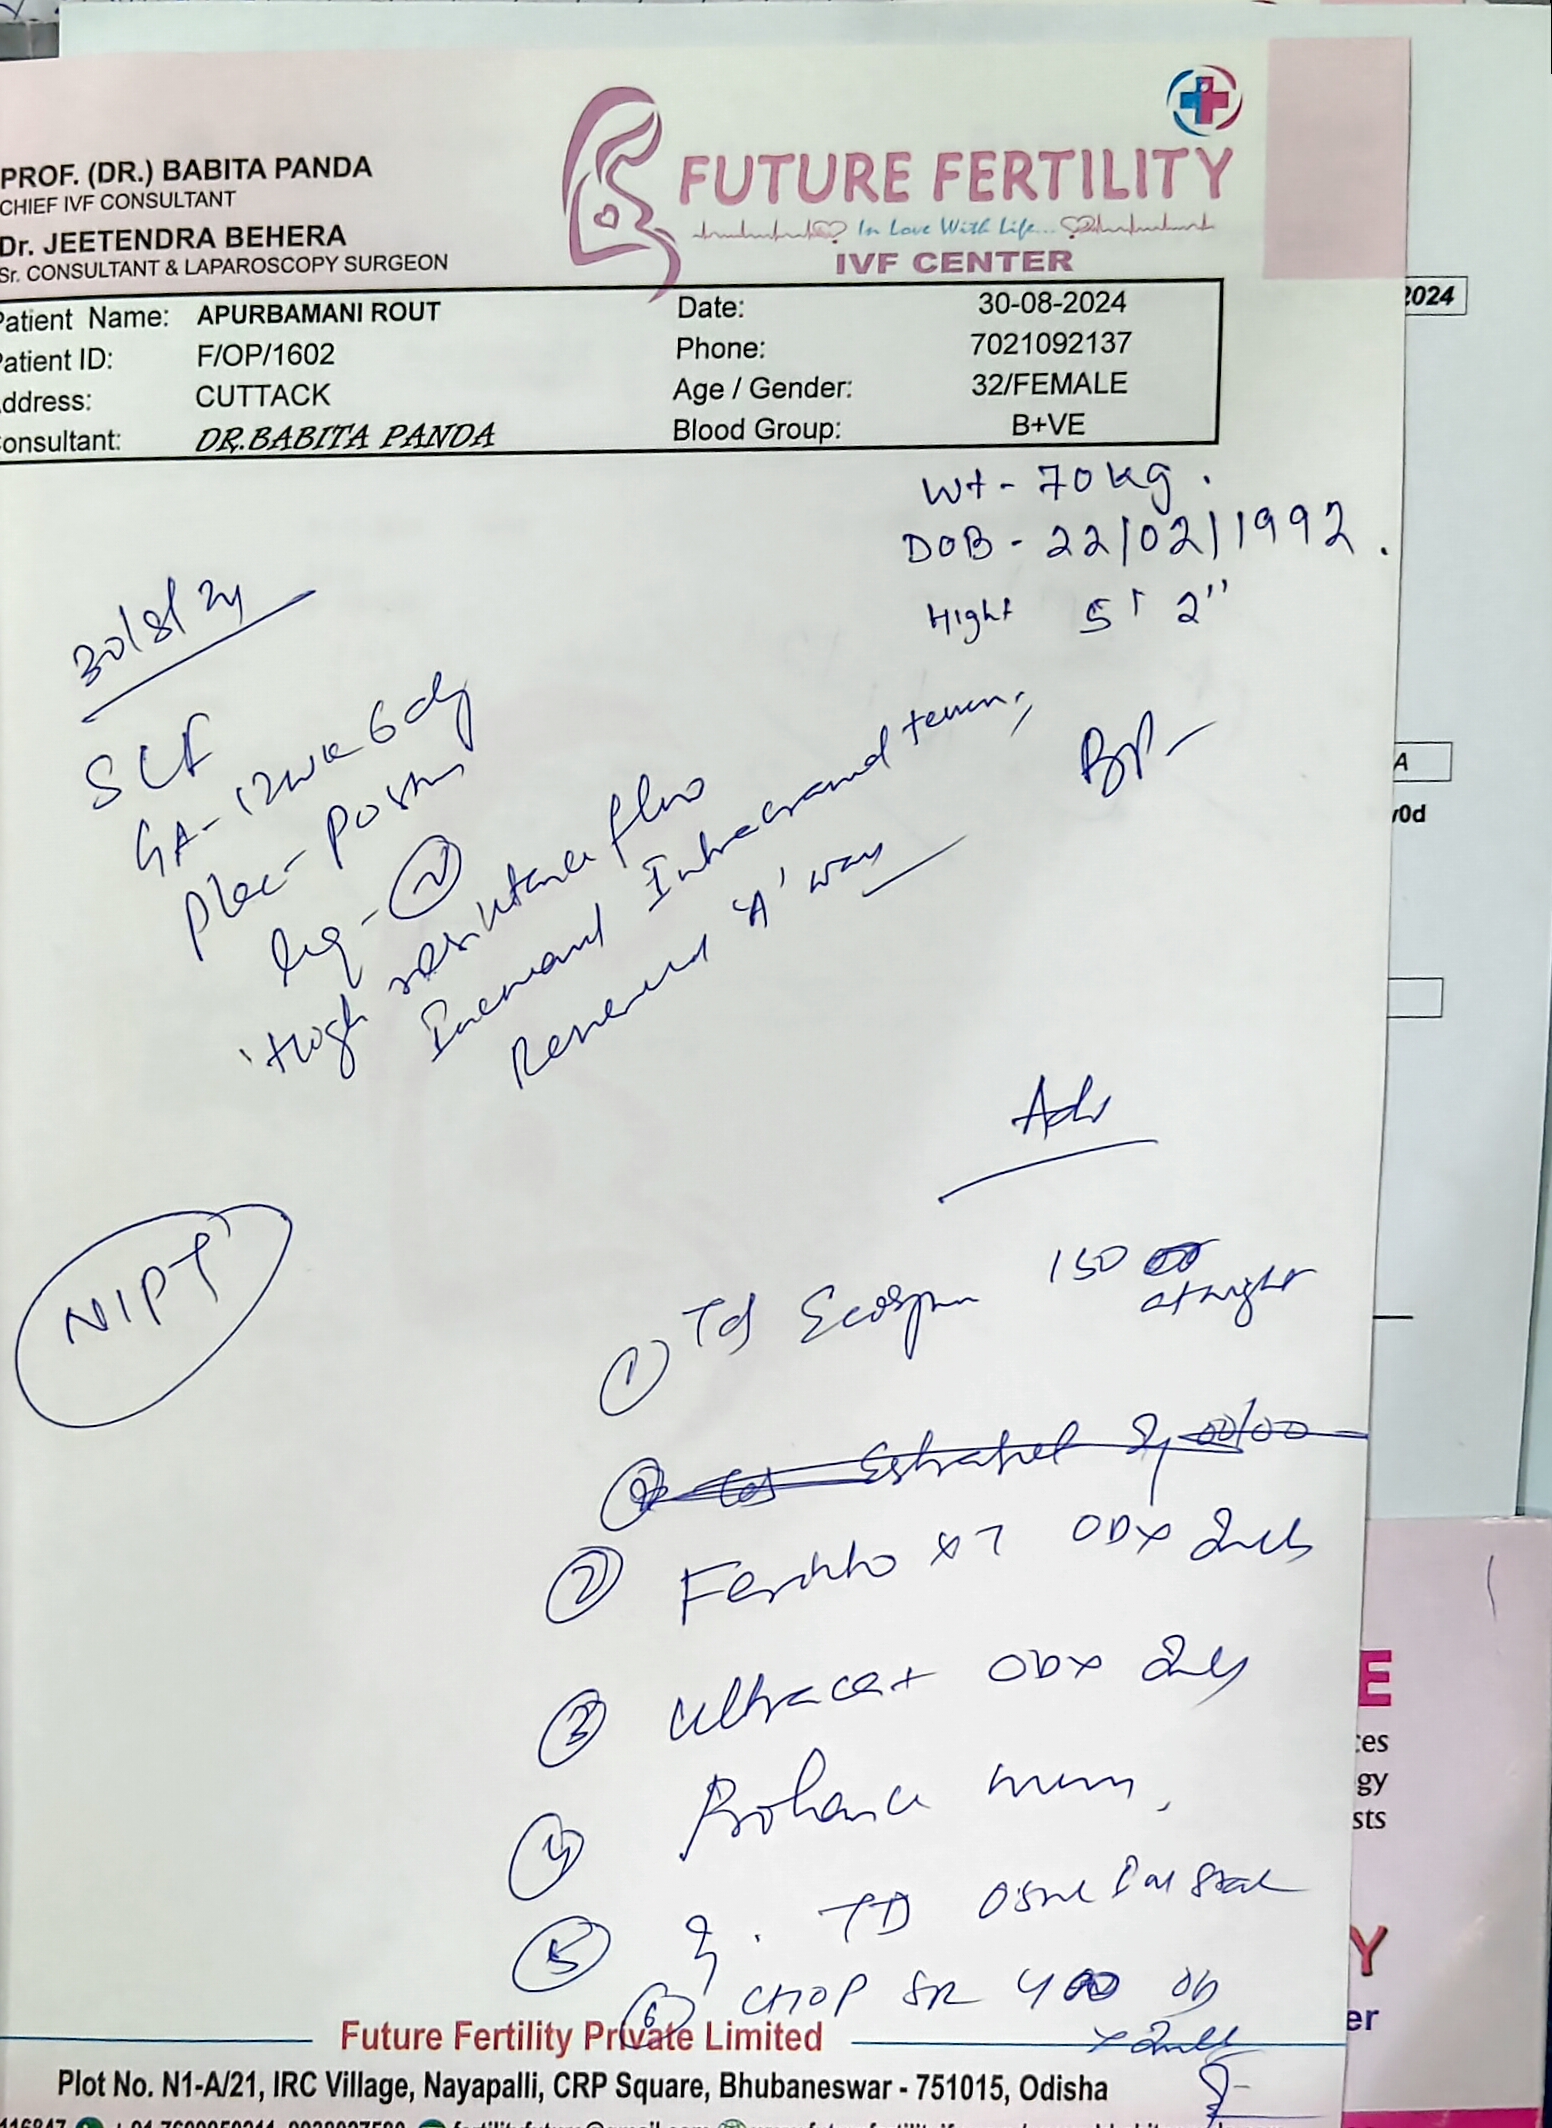 PROF. (DR.) BABITA PANDA
CHIEF IVF CONSULTANT
Dr. JEETENDRA BEHERA
Sr. CONSULTANT & LAPAROSCOPY SURGEON
FUTURE FERTILITY
In Love With Life...
IVF CENTER
Patient Name: APURBAMANI ROUT Date: 30-08-2024
Patient ID: F/OP/1602 Phone: 7021092137
ddress: CUTTACK Age / Gender: 32/FEMALE
onsultant: DR.BABITA PANDA Blood Group: B+VE
2024
Wt - 70 kg.
DOB - 22/02/1992.
Hight 5' 2"
30/8/24
SLF
GA- 12wk 6dy
Plac- Postn
liq-
High resistance flow
Intracranial
Reversed 'A' wave
BP-
A
v0d
Adv
NIPT
① Tab Ecosprin 150 at night
② XT OD x
③ Ultracet OD x
④ Prohance mum
⑤ TD 0.5ml IM
⑥ CHOP SR 400 OD
x
E
ces
gy
sts
Y
er
Future Fertility Private Limited
Plot No. N1-A/21, IRC Village, Nayapalli, CRP Square, Bhubaneswar - 751015, Odisha